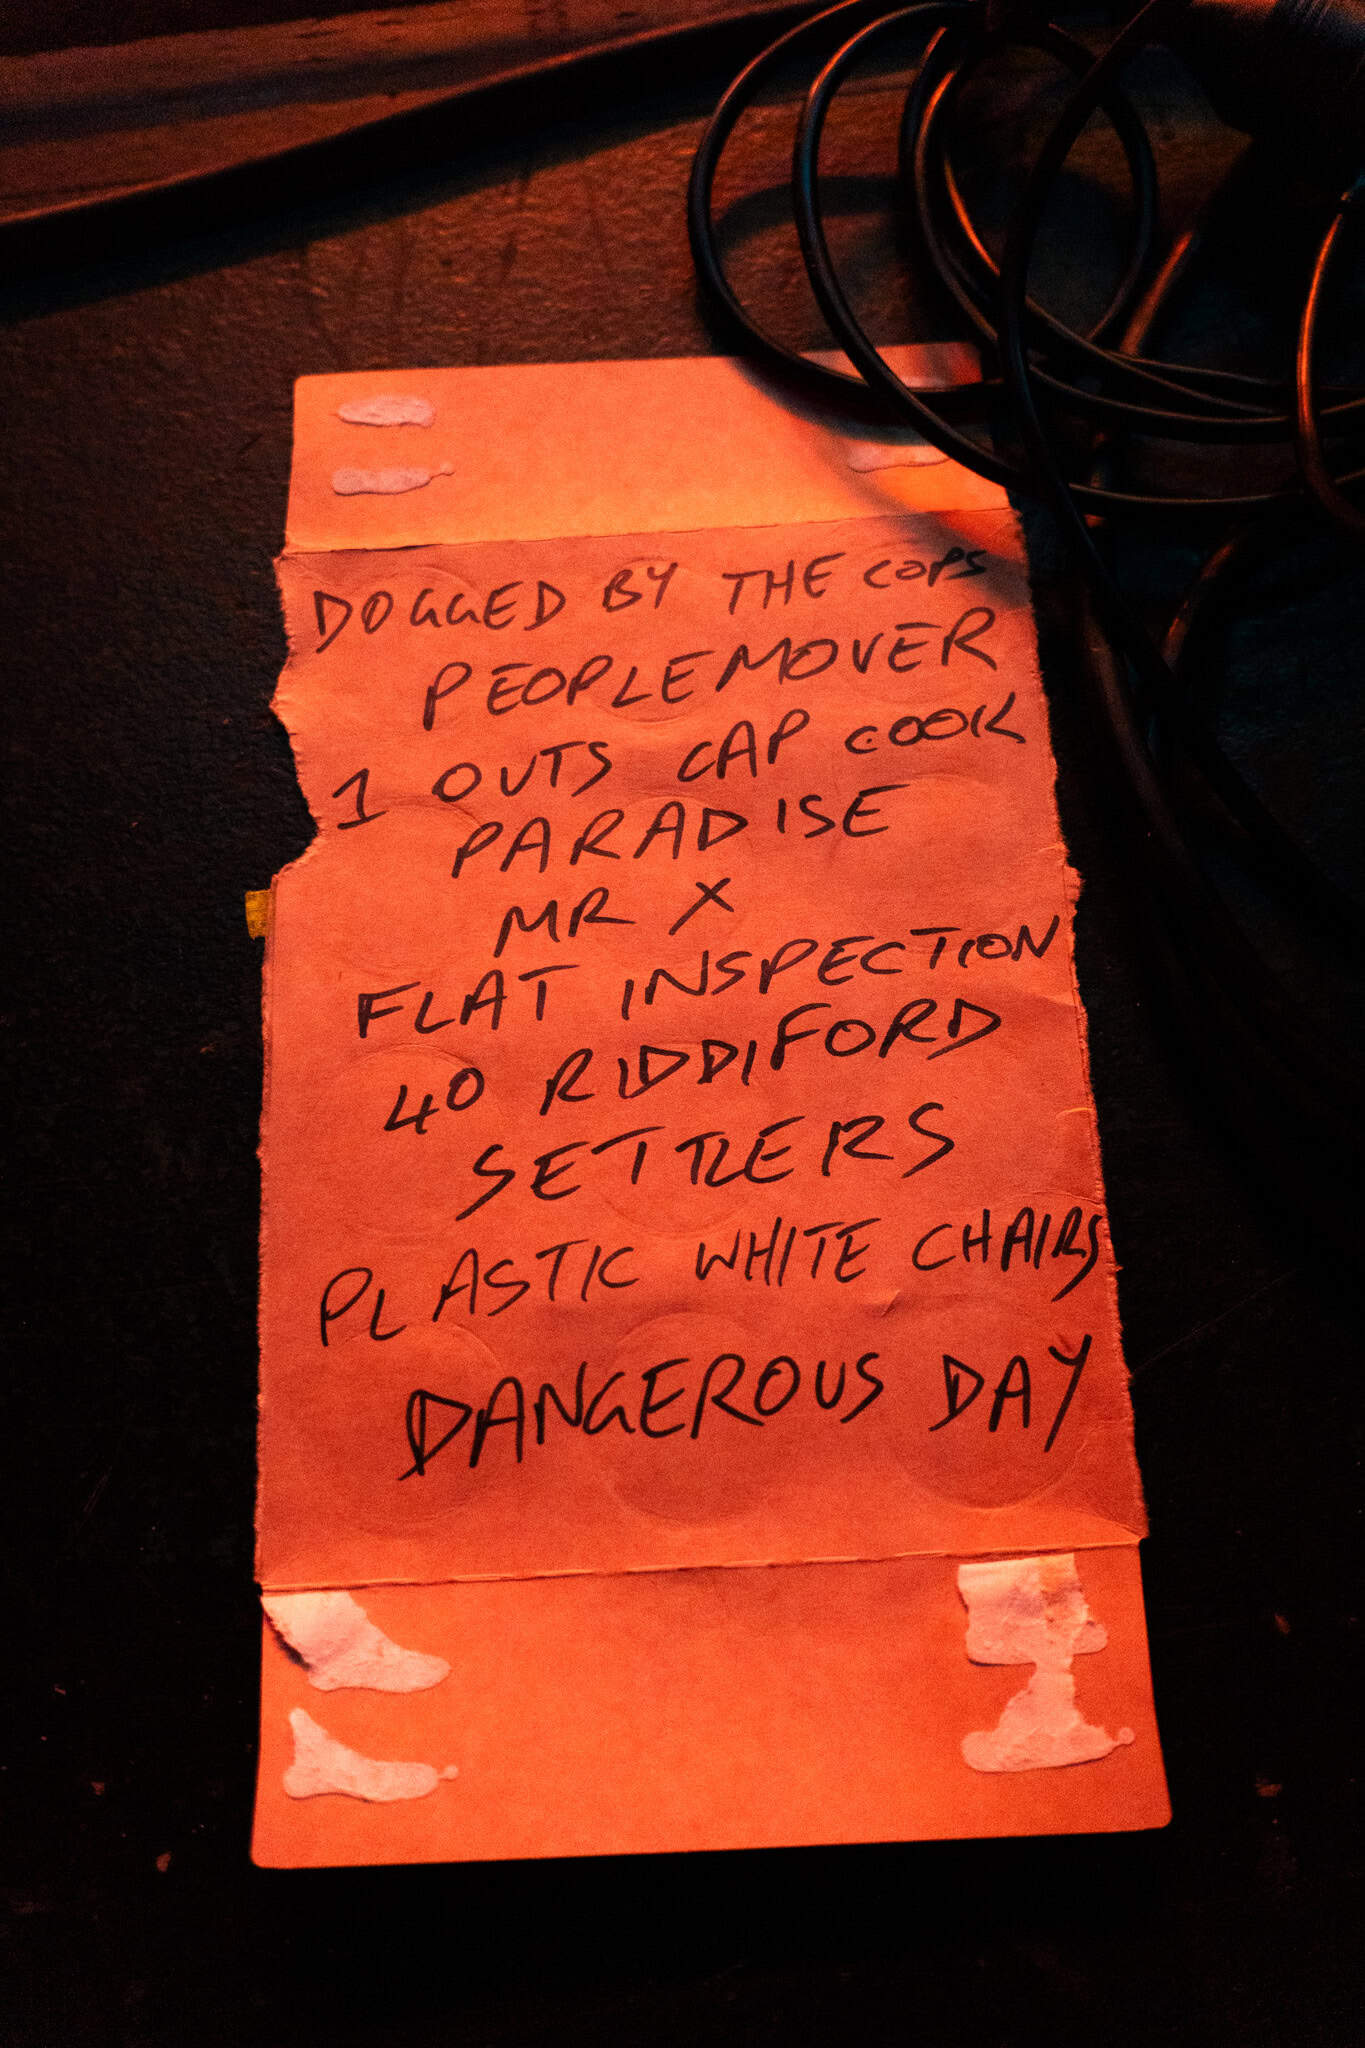 DOGGED BY THE COPS
PEOPLEMOVER
1 OUTS CAP COOK
PARADISE
MR X
FLAT INSPECTION
40 RIDDIFORD
SETTLERS
PLASTIC WHITE CHAIRS
DANGEROUS DAY